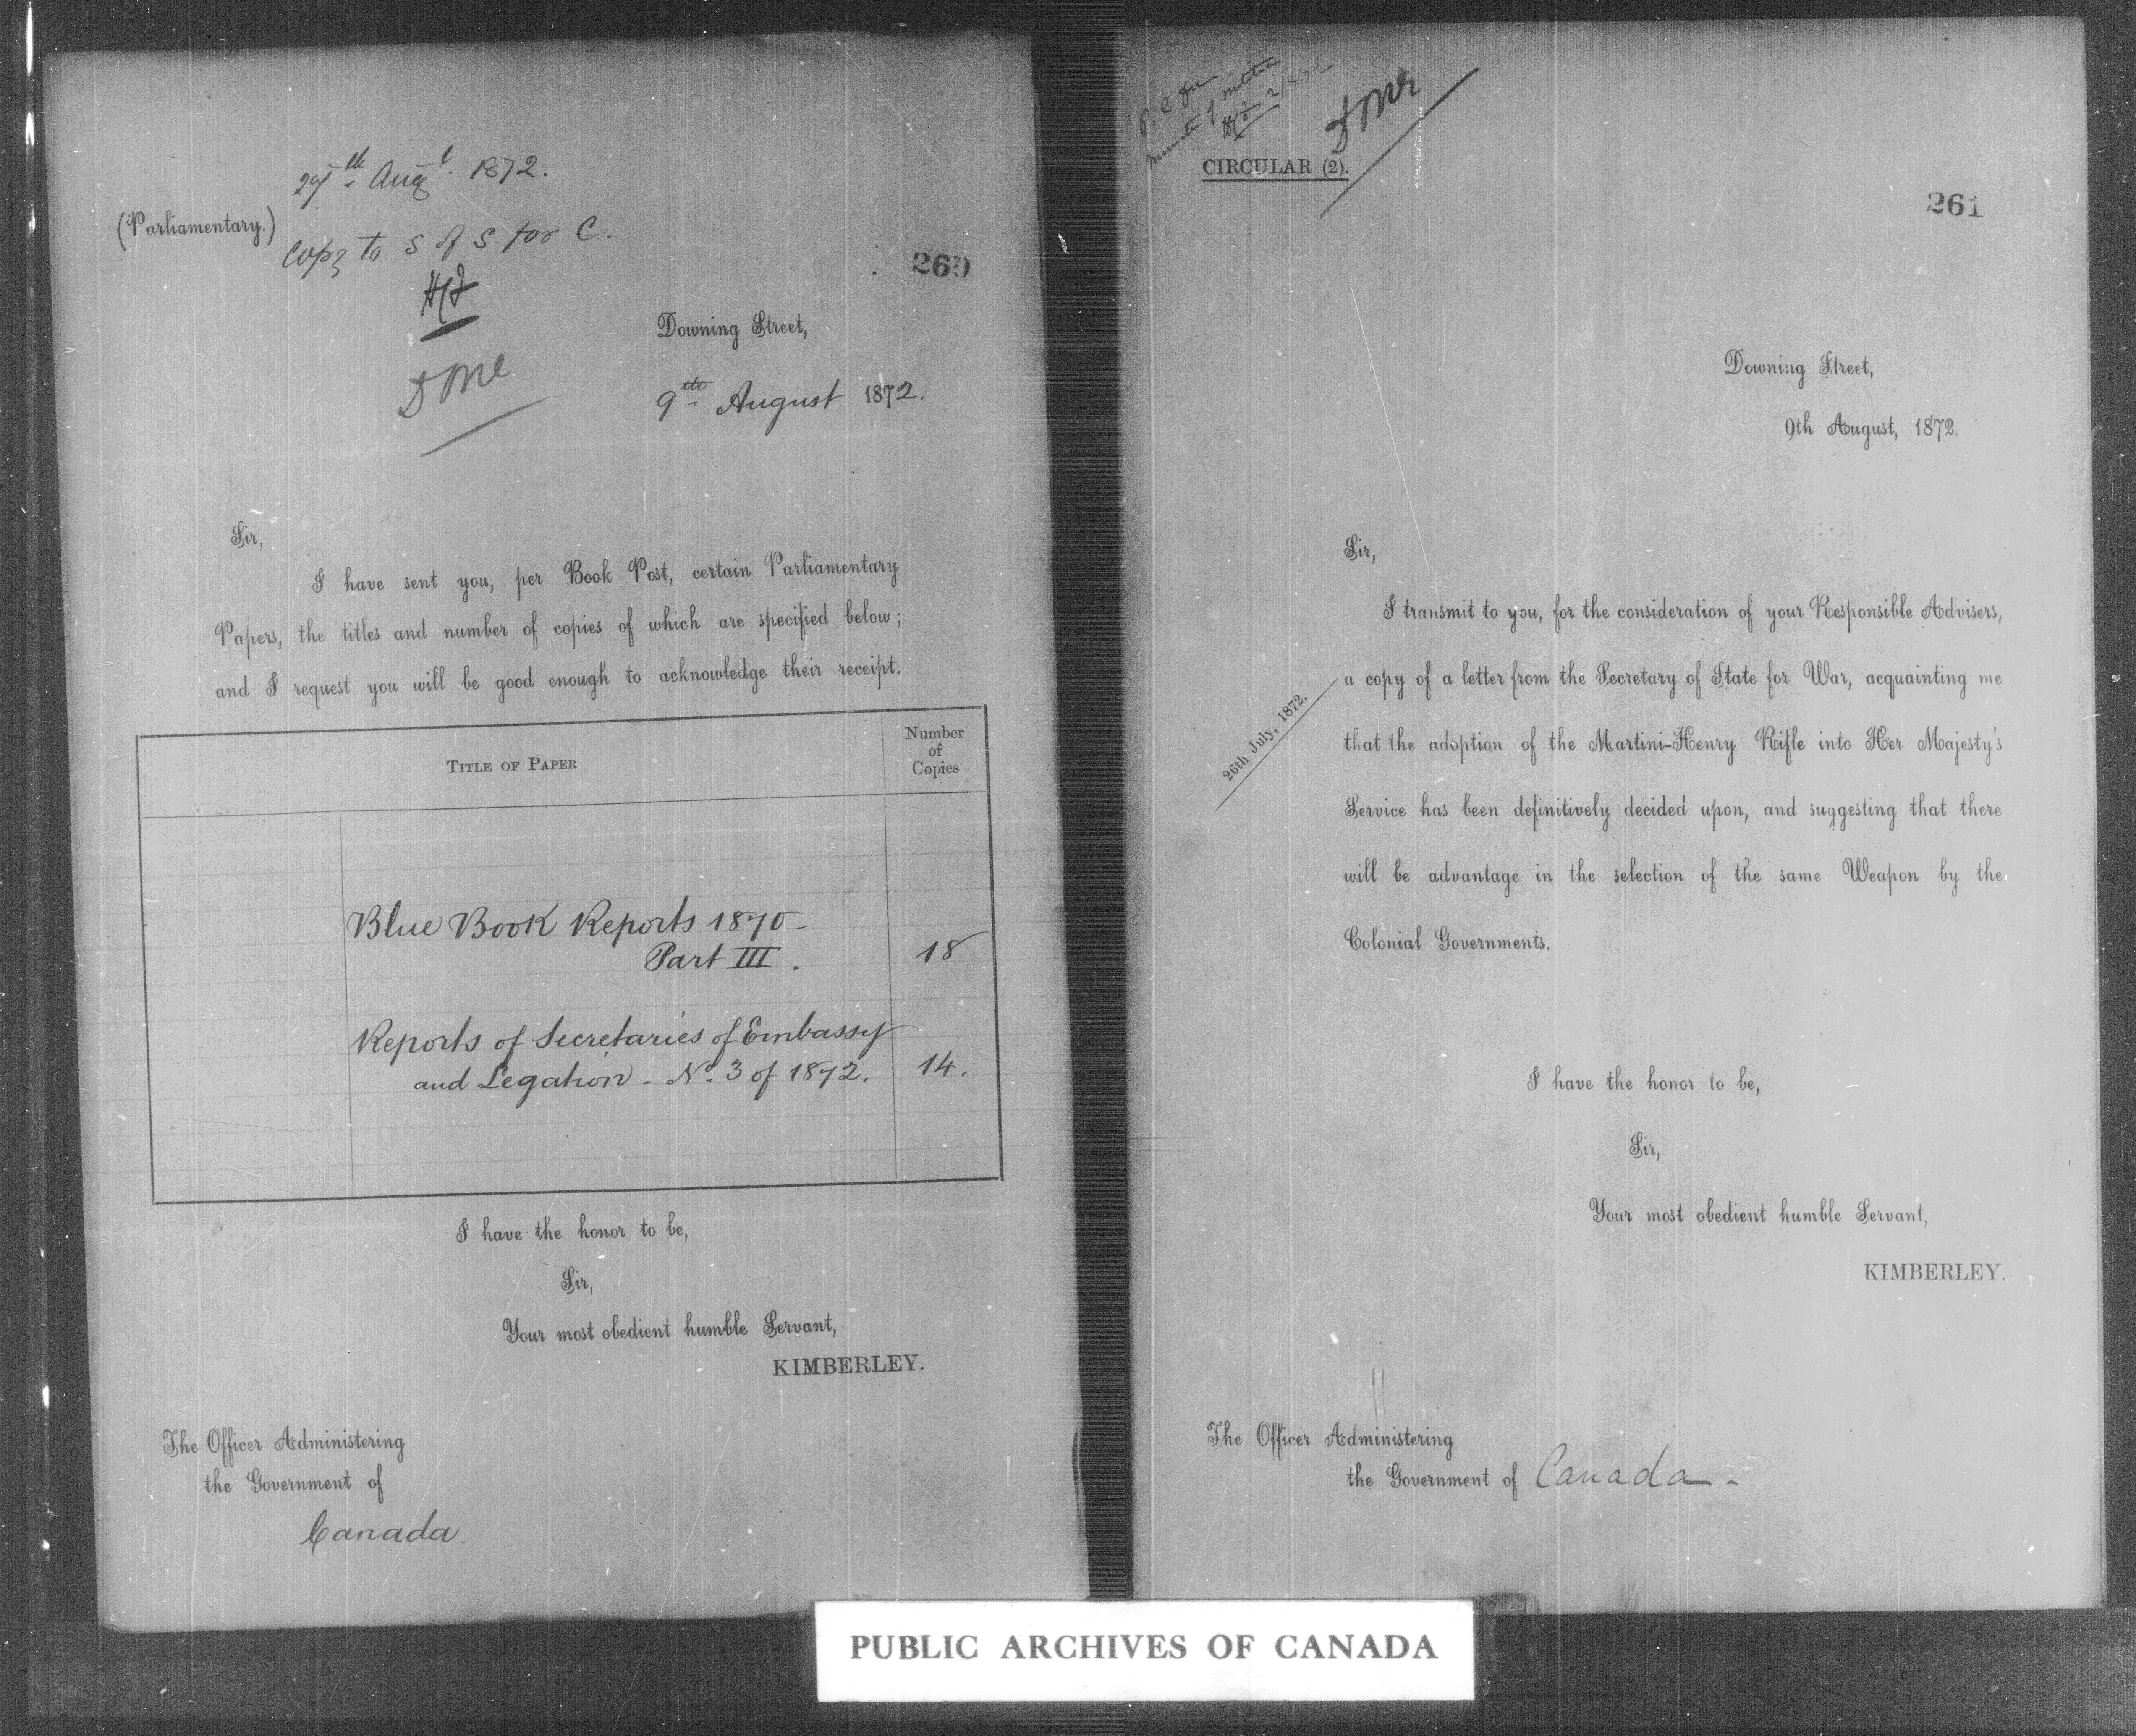 29th Augt. 1872.
(Parliamentary.)
Copy to S of S for C.
260
Downing Street,
9th August 1872.
Done
Sir,
I have sent you, per Book Post, certain Parliamentary
Papers, the titles and number of copies of which are specified below;
and I request you will be good enough to acknowledge their receipt.
TITLE OF PAPER
Number
of
Copies
Blue Book Reports 1870-
Part III. 18
Reports of Secretaries of Embassy
and Legation - No. 3 of 1872. 14.
I have the honor to be,
Sir,
Your most obedient humble Servant,
KIMBERLEY.
The Officer Administering
the Government of
Canada.
P. C for
Minister of Militia
Done
CIRCULAR (2).
261
Downing Street,
9th August, 1872.
Sir,
I transmit to you, for the consideration of your Responsible Advisers,
a copy of a letter from the Secretary of State for War, acquainting me
26th July, 1872.
that the adoption of the Martini-Henry Rifle into Her Majesty's
Service has been definitively decided upon, and suggesting that there
will be advantage in the selection of the same Weapon by the
Colonial Governments.
I have the honor to be,
Sir,
Your most obedient humble Servant,
KIMBERLEY.
The Officer Administering
the Government of Canada -
PUBLIC ARCHIVES OF CANADA